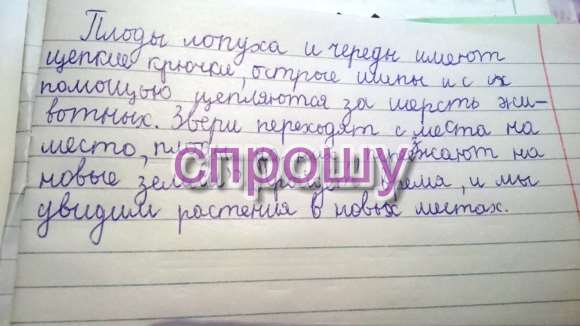 Плоды лопуха и череды имеют
цепкие крючки, острые шипы и с их
помощью цепляются за шерсть жи-
вотных. Звери переходят с места на
место, на
спрошу
новые и мы
увидим растения в новых местах.